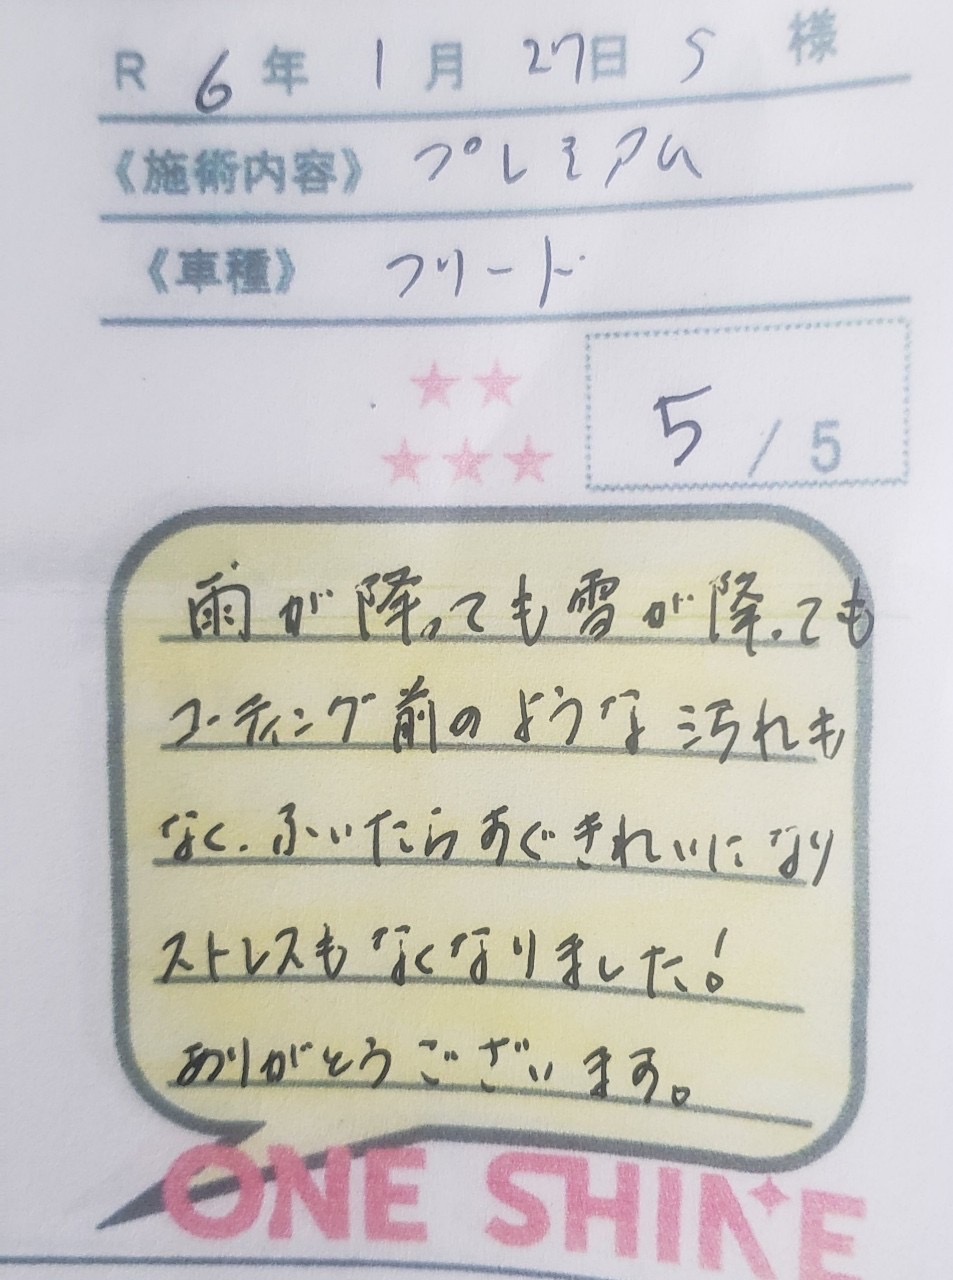 R 6年 1月 27日 S 様
《施術内容》 プレミアム
《車種》 フリード
5 / 5
雨が降っても雪が降っても
コーティング前のような汚れも
なく、ふいたらすぐきれいになり
ストレスもなくなりました!
ありがとうございます。
ONE SHINE